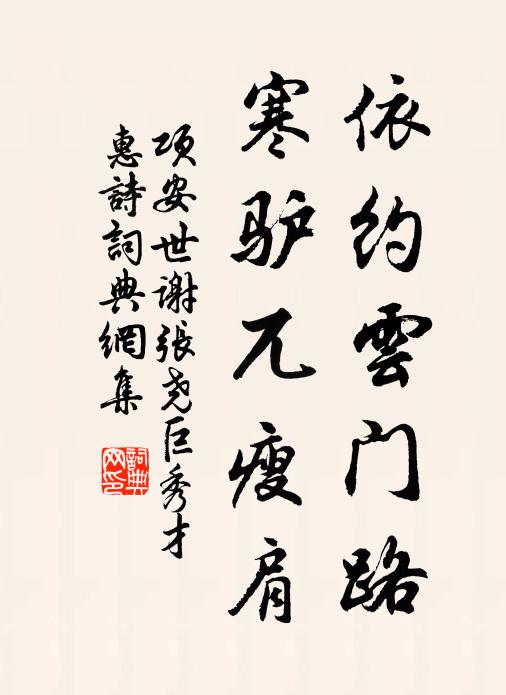 依约雲门路
寒驴兀瘦肩
项安世谢張尧臣秀才
惠詩詞典網集
詞典
网印